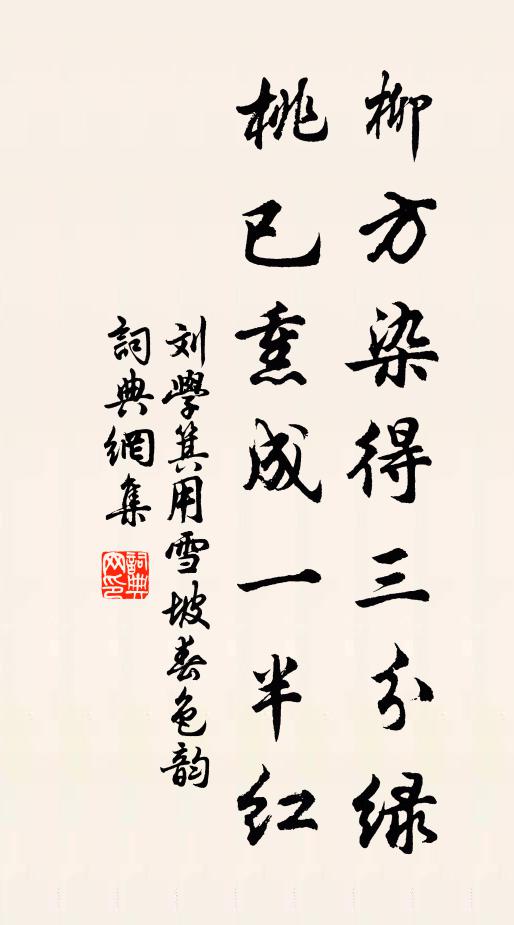 柳方染得三分绿
桃已熏成一半红
刘學箕用雪坡春色韵
詞典網集
詞典
网印